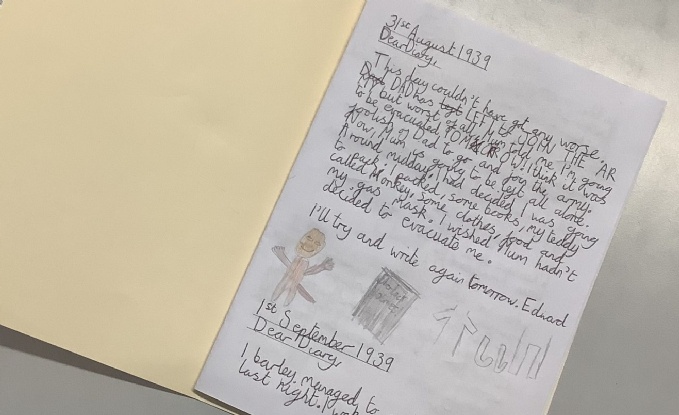 31st August 1939
Dear Diary,
This day couldn't have got any worse.
DAD has LEFT to JOIN THE AR
MY but worst of all, Mum told me I'm going
to be evacuated TOMORROW! I think it was
foolish of Dad to go and join the army.
Now, Mum is going to be left all alone.
Around midday, I had decided I was going
to pack. I packed, some books, my teddy
called Monkey, some clothes, food and
my gas mask. I wished Mum hadn't
decided to evacuate me.
I'll try and write again tomorrow. Edward
1st September 1939
Dear Diary,
I barley managed to
last night. I